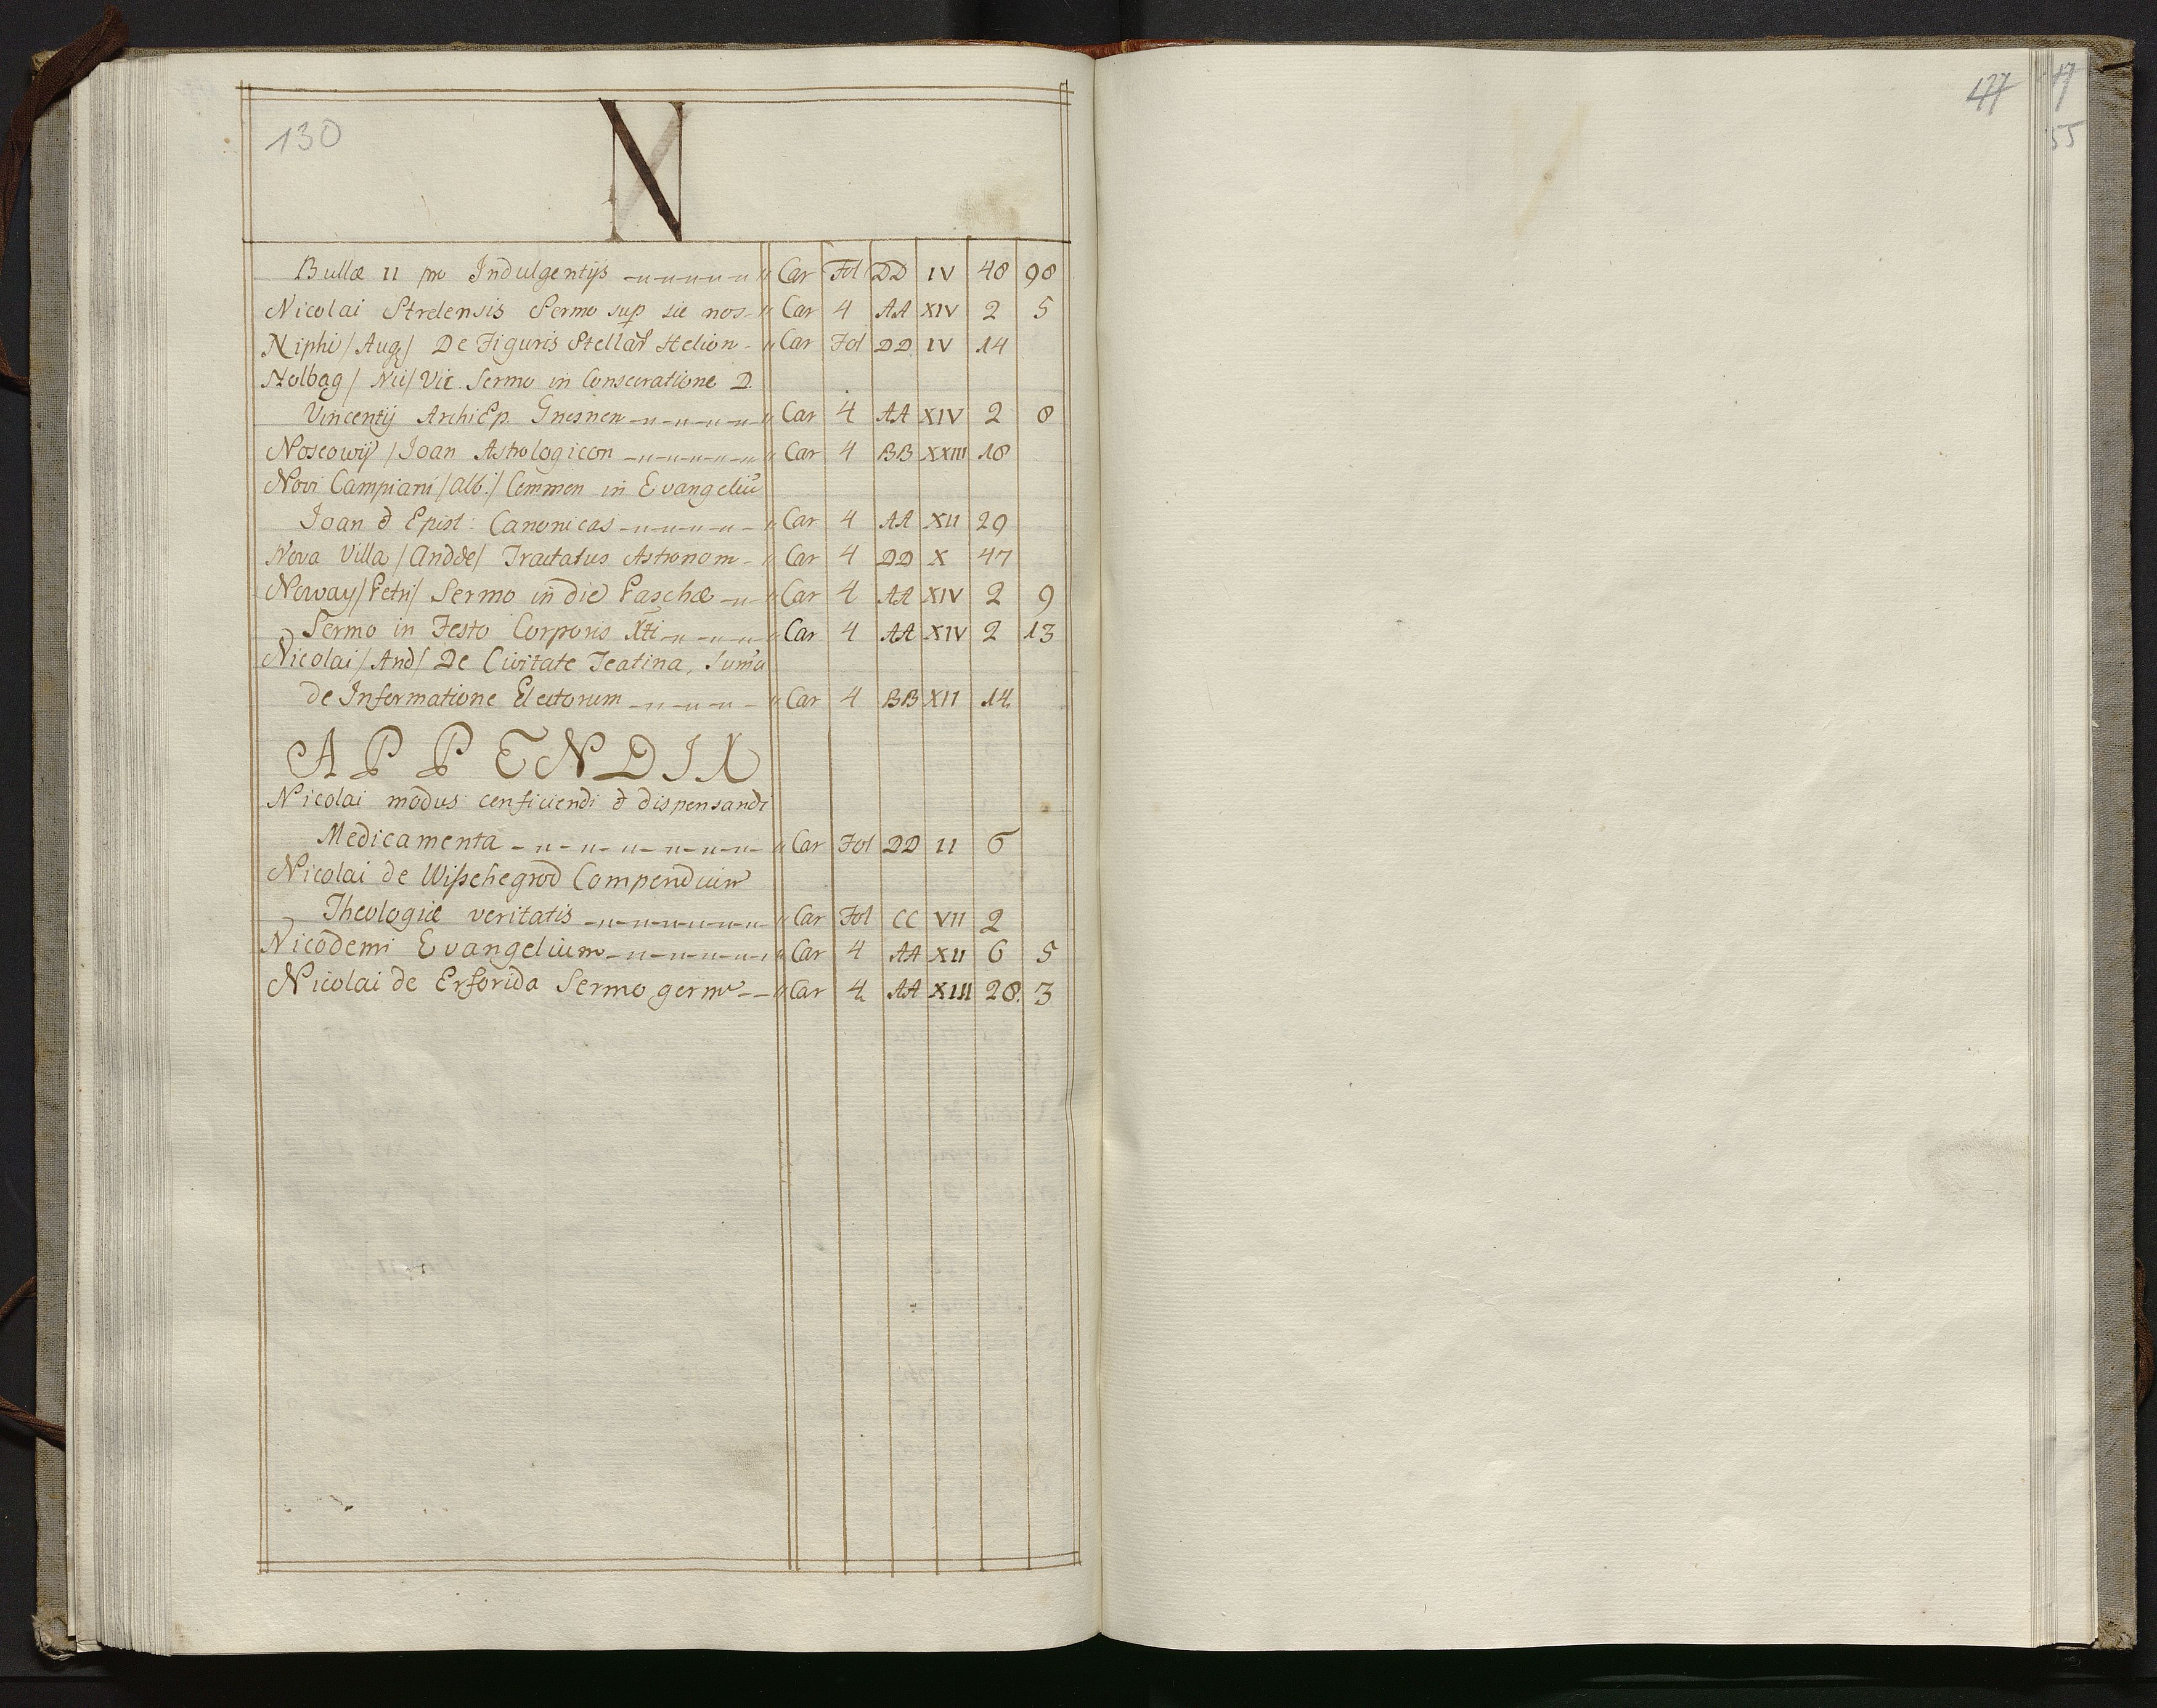 130
N
Bullæ II pro Indulgentijs Car Fol DD IV 48 98
Nicolai Strelensis Sermo sup sic nos Car 4 AA XIV 2 5
Niphi / Aug / De Figuris Stellar Helion Car Fol DD IV 14
Nolbag / Nic / Vic Sermo in Consecratione D.
Vincentij ArchiEp. Gnesnen Car 4 AA XIV 2 8
Noscowij / Joan Astrologicon Car 4 BB XXIII 18
Novi Campiani / Alb. / Commen in Evangeliū
Joan & Epist: Canonicas Car 4 AA XII 29
Nova Villa / And de / Tractatus Astronom Car 4 DD X 47
Noway / Petri / Sermo in die Paschæ Car 4 AA XIV 2 9
Sermo in Festo Corporis Xti Car 4 AA XIV 2 13
Nicolai / And / De Civitate Teatina, Suma
de Informatione Electorum Car 4 BB XII 14
APPENDIX
Nicolai modus conficiendi & dispensandi
Medicamenta Car Fol DD II 6
Nicolai de Wißehegrod Compendium
Theologiæ veritatis Car Fol CC VII 2
Nicodemi Evangelium Car 4 AA XII 6 5
Nicolai de Erforida Sermo germ Car 4 AA XIII 28. 3
477
55